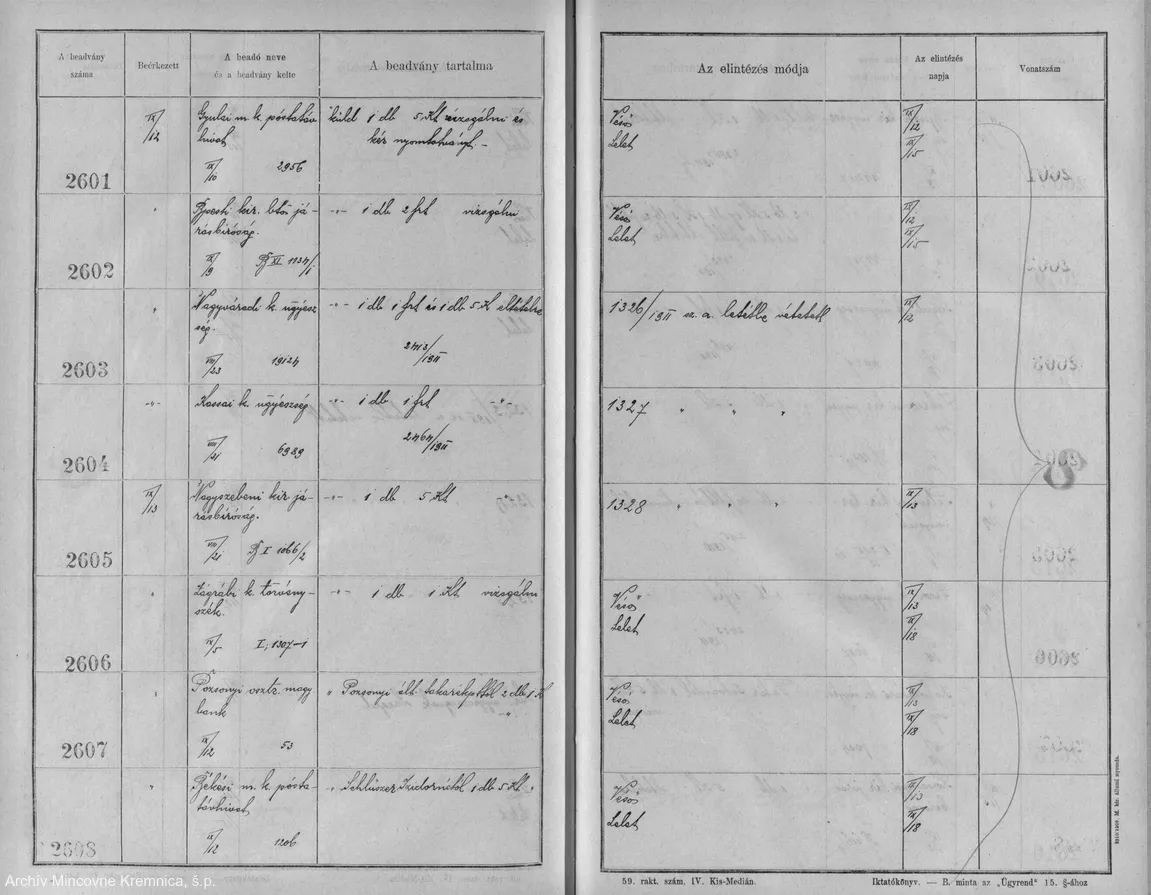 A beadvány száma
Beérkezett
A beadó neve és a beadvány kelte
A beadvány tartalma
Az elintézés módja
Az elintézés napja
Vonatszám
2601
IX/12
Gyulai m. k. pósta
hivat
IX/10 2956
küld 1 db 5 Kt vizsgálni és
kér nyomtatványt. -
Véső
Lelet
IX/12
IX/15
2602
"
kir. btő já-
rásbíróság.
IX/9 XI 1134/1
-"- 1 db 2 frt vizsgálni
Véső
Lelet
IX/12
IX/15
2603
"
Nagyváradi k. ügyész
ség.
VIII/23 19124
-"- 1 db 1 frt és 1 db 5 Kt eltételre
2413/1911
1326/1911 sz. a. letétbe vétetett
IX/12
2604
-"-
Kassai k. ügyészség
VIII/21 6989
-"- 1 db 1 frt -"-
2464/1911
1327 " " "
2605
IX/13
Nagyszebeni kir. já-
rásbíróság.
VIII/21 I 1066/2
-"- 1 db 5 Kt -"-
1328 " " "
IX/13
2606
"
Zágrábi k. törvény-
szék.
IX/5 I, 1307-1
-"- 1 db 1 Kt vizsgálni
Véső
Lelet
IX/13
IX/18
2607
"
Pozsonyi osztr. magy
bank
IX/12 53
" Pozsonyi ált. takarékpttól 2 db 1 K
-"-
Véső
Lelet
IX/13
IX/18
2608
"
Békési m. k. pósta-
távhivat
IX/12 1206
" Schlüszer Izidornétól 1 db 5 Kt "
Véső
Lelet
IX/13
IX/18
8
59. rakt. szám. IV. Kis-Medián.
Iktatókönyv. — B. minta az „Ügyrend" 15. §-ához
M. kir. állami nyomda.
Archív Mincovne Kremnica, š.p.